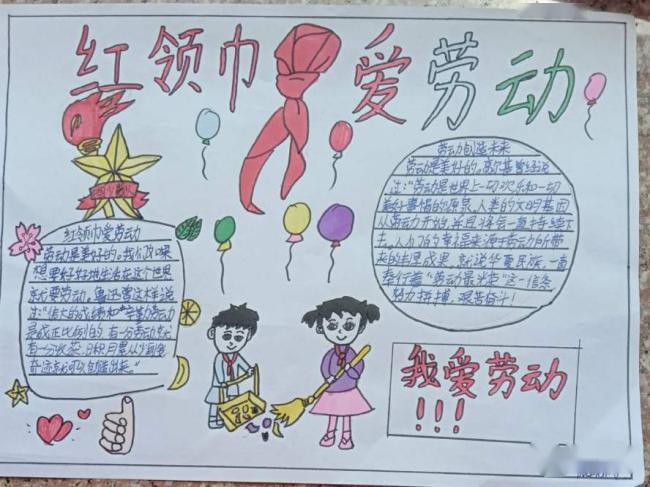 红领巾 爱劳动
劳动创造未来
劳动是美好的。高尔基曾经说
过:"劳动是世界上一切欢乐和一切
美好事情的源泉,人类的文明基因
从劳动开始,并且将会一直持续下
去。人们的幸福来源于劳动所带
来的丰硕成果,就说华夏民族,一直
奉行着"劳动最光荣"这一信条
努力拼搏,艰苦奋斗!
红领巾爱劳动
劳动是美好的。我们如果
想要好好地生活在这个世界
就要劳动。鲁迅曾这样说
过:"伟大的成绩和"辛勤劳动
是成正比例的,有一分劳动就
有一分收获,日积月累从少到多
奇迹就可以创造出来。"
我爱劳动
!!!